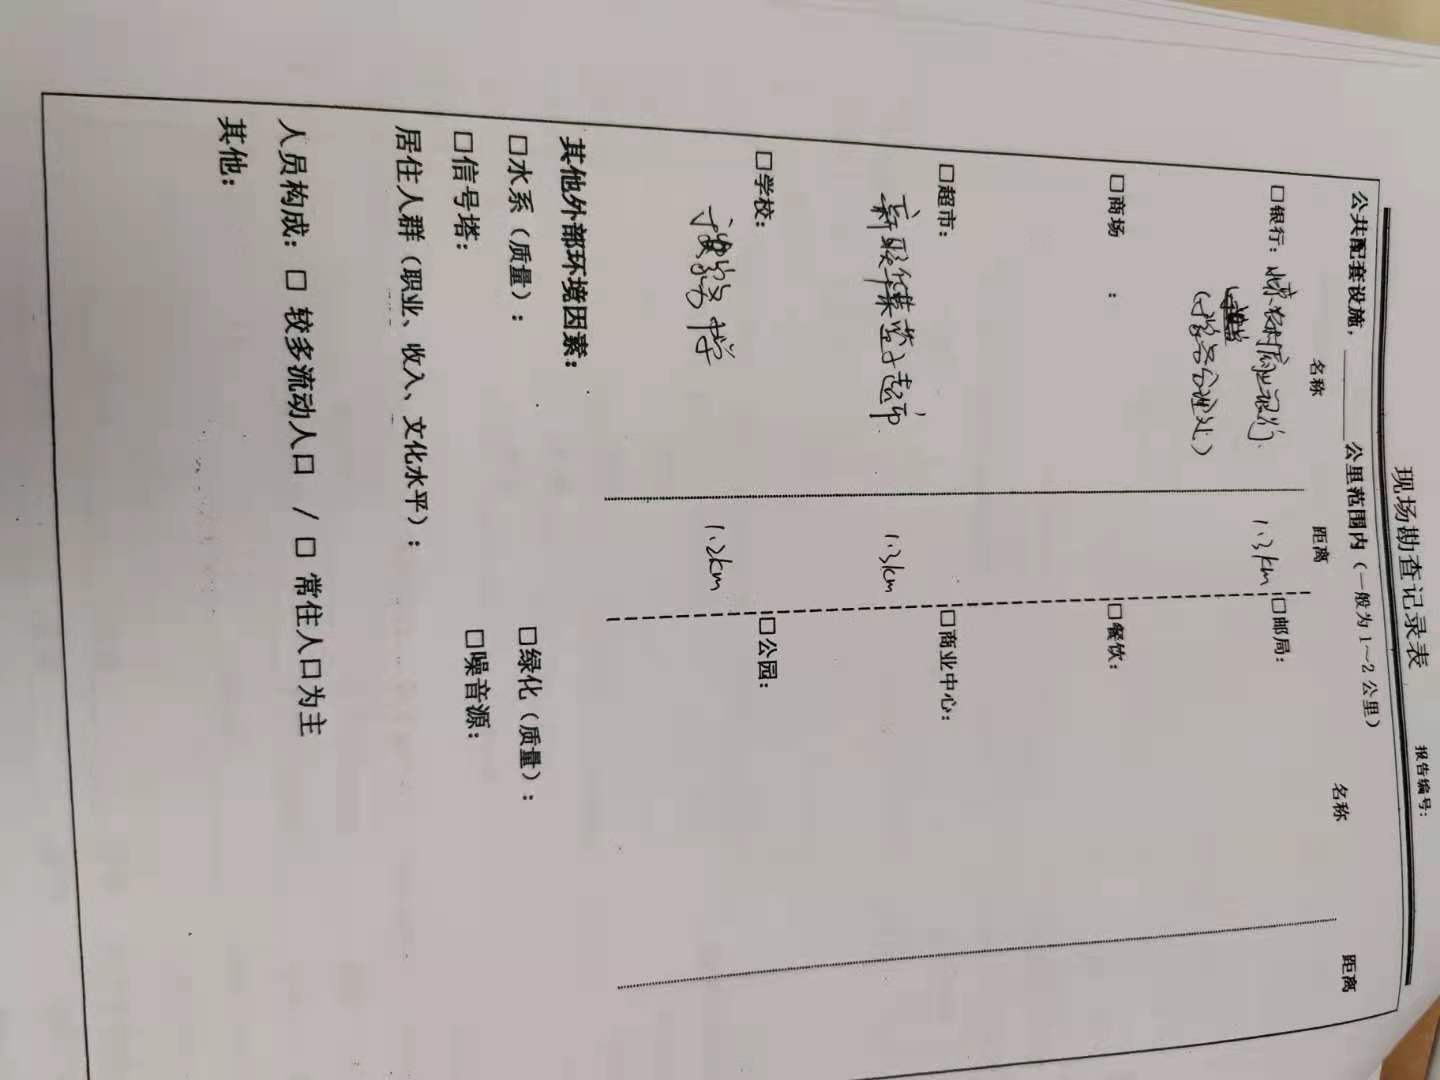 现场勘查记录表
报告编号:
公共配套设施，______公里范围内（一般为1～2公里）
名称 距离 名称 距离
□银行: 农村商业银行 1.3km □邮局:
分理处）
□商场 : □餐饮:
□超市: 新联华 超市 1.3km □商业中心:
□学校: 中学 1.2km □公园:
其他外部环境因素:
□水系（质量）: □绿化（质量）:
□信号塔: □噪音源:
居住人群（职业、收入、文化水平）:
人员构成: □ 较多流动人口 / □ 常住人口为主
其他: